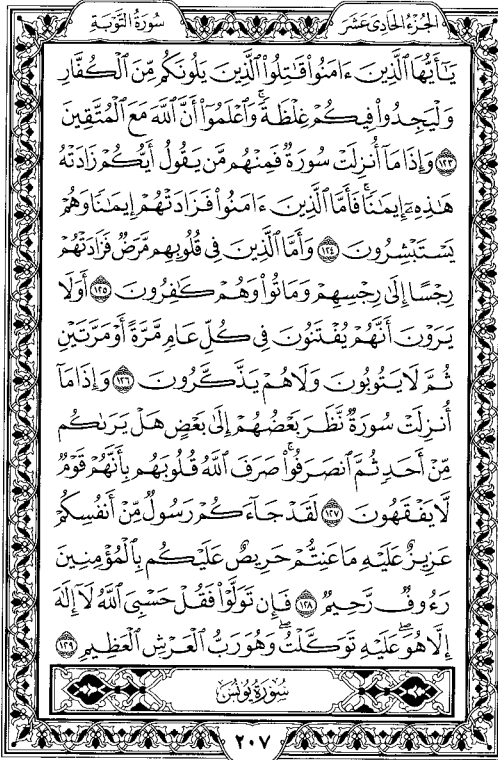 الجزء الحادي عشر
سورة التوبة
يَٰٓأَيُّهَا ٱلَّذِينَ ءَامَنُوا۟ قَٰتِلُوا۟ ٱلَّذِينَ يَلُونَكُم مِّنَ ٱلْكُفَّارِ
وَلْيَجِدُوا۟ فِيكُمْ غِلْظَةً ۚ وَٱعْلَمُوٓا۟ أَنَّ ٱللَّهَ مَعَ ٱلْمُتَّقِينَ
١٢٣ وَإِذَا مَآ أُنزِلَتْ سُورَةٌ فَمِنْهُم مَّن يَقُولُ أَيُّكُمْ زَادَتْهُ
هَٰذِهِۦٓ إِيمَٰنًا ۚ فَأَمَّا ٱلَّذِينَ ءَامَنُوا۟ فَزَادَتْهُمْ إِيمَٰنًا وَهُمْ
يَسْتَبْشِرُونَ ١٢٤ وَأَمَّا ٱلَّذِينَ فِى قُلُوبِهِم مَّرَضٌ فَزَادَتْهُمْ
رِجْسًا إِلَىٰ رِجْسِهِمْ وَمَاتُوا۟ وَهُمْ كَٰفِرُونَ ١٢٥ أَوَلَا
يَرَوْنَ أَنَّهُمْ يُفْتَنُونَ فِى كُلِّ عَامٍ مَّرَّةً أَوْ مَرَّتَيْنِ
ثُمَّ لَا يَتُوبُونَ وَلَا هُمْ يَذَّكَّرُونَ ١٢٦ وَإِذَا مَآ
أُنزِلَتْ سُورَةٌ نَّظَرَ بَعْضُهُمْ إِلَىٰ بَعْضٍ هَلْ يَرَىٰكُم
مِّنْ أَحَدٍ ثُمَّ ٱنصَرَفُوا۟ ۚ صَرَفَ ٱللَّهُ قُلُوبَهُم بِأَنَّهُمْ قَوْمٌ
لَّا يَفْقَهُونَ ١٢٧ لَقَدْ جَآءَكُمْ رَسُولٌ مِّنْ أَنفُسِكُمْ
عَزِيزٌ عَلَيْهِ مَا عَنِتُّمْ حَرِيصٌ عَلَيْكُم بِٱلْمُؤْمِنِينَ
رَءُوفٌ رَّحِيمٌ ١٢٨ فَإِن تَوَلَّوْا۟ فَقُلْ حَسْبِىَ ٱللَّهُ لَآ إِلَٰهَ
إِلَّا هُوَ ۖ عَلَيْهِ تَوَكَّلْتُ ۖ وَهُوَ رَبُّ ٱلْعَرْشِ ٱلْعَظِيمِ ١٢٩
سُورَةُ يُونُسَ
٢٠٧